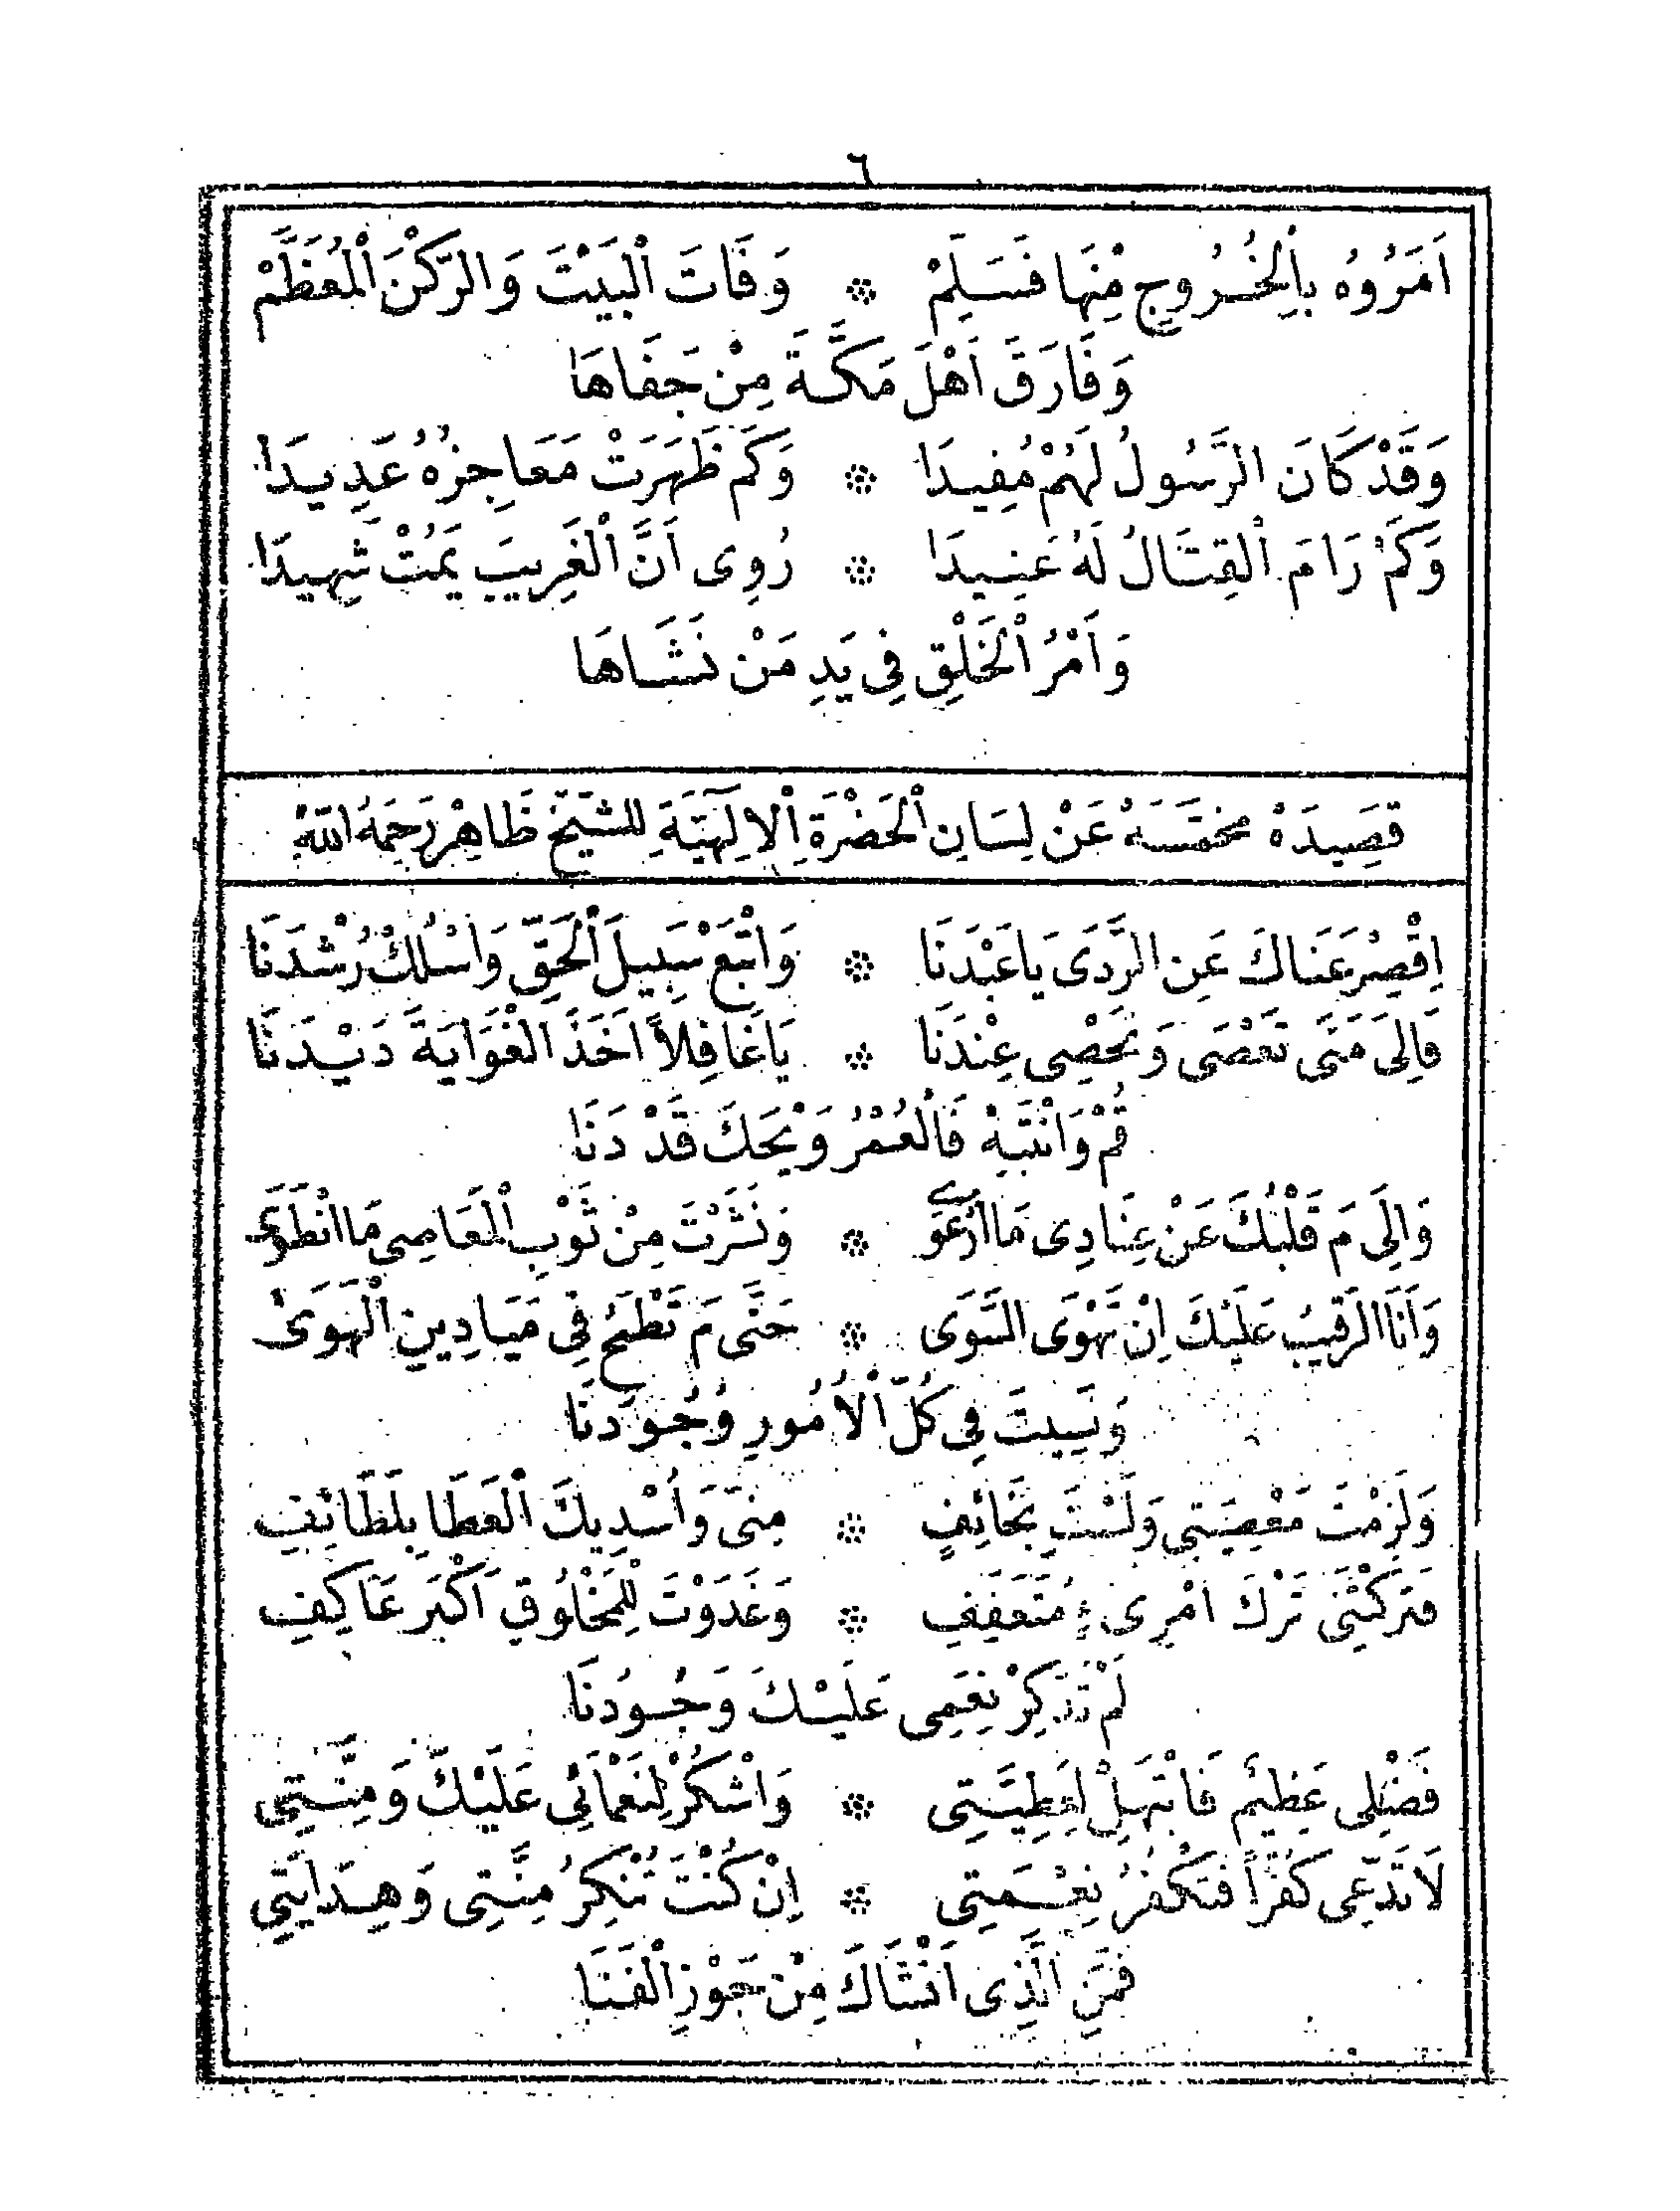 ٦
اَمَرُوهُ بِاْلخُرُوجِ مِنْهَا فَسَلِّمْ ※ وَفَاتَ اْلبَيْتَ وَالرُّكْنَ اْلمُعَظَّمْ
وَفَارَقَ اَهْلَ مَكَّةَ مِنْ جَفَاهَا
وَقَدْ كَانَ الرَّسُولُ لَهُمْ مُفِيدَا ※ وَكَمْ ظَهَرَتْ مَعَاجِزُهُ عَدِيدَا
وَكَمْ رَامَ اْلقِتَالُ لَهُ عَنِيدَا ※ رُوِى اَنَّ اْلغَرِيبَ يَمُتْ شَهِيدَا
وَاَمْرُ اْلخَلْقِ فِى يَدِ مَنْ نَشَاهَا
قَصِيدَهْ مخمَّسَهْ عَنْ لِسَانِ اْلحَضْرَةِ اْلاِلٰهِيَّةِ لِلشَّيْخِ طَاهِرْ رَحِمَهُ اللهُ
اِقْصِرْ عَنَاكَ عَنِ الرَّدَى يَا عَبْدَنَا ※ وَاتْبَعْ سَبِيلَ اْلحَقِّ وَاسْلُكْ رُشْدَنَا
فَاِلَى مَتَى تَعْصَى وَتُحْصِى عِنْدَنَا ※ يَا غَافِلاً اَخَذَ الْغَوَايَةَ دَيْدَنَا
قُمْ وَانْتَبِهْ فَالْعُمْرُ وَيْحَكَ قَدْ دَنَا
وَاِلَى مَ قَلْبُكَ عَنْ عِنَادِى مَا ارْعَوَى ※ وَنَشَرْتَ مِنْ ثَوْبِ اْلمَعَاصِى مَا انْطَوَى
وَاَنَا الرَّقِيبُ عَلَيْكَ اِنْ تَهْوَى السَّوَى ※ حَتَّى مَ تَطْمَحُ فِى مَيَادِينِ اْلهَوَى
وَنَسِيتَ فِى كُلِّ اْلاُمُورِ وُجُودَنَا
وَلَزِمْتَ مَعْصِيَتِى وَلَسْتَ بِخَائِفٍ ※ مِنِّى وَاُسْدِيكَ اْلعَطَا بِلَطَائِفِ
فَتَرَكْتَنِى تَرْكَ امْرِىءٍ مُتَعَفِّفِ ※ وَغَدَوْتَ لِلْمَخْلُوقِ اَكْبَرَ عَاكِفِ
لَمْ تَذَّكِرْ نِعَمِى عَلَيْكَ وَجُودَنَا
فَضْلِى عَظِيْمٌ فَابْتَهِلْ لِعَطِيَّتِى ※ وَاشْكُرْ لِنَعْمَائِى عَلَيْكَ وَمِنَّتِى
لَا تَدَّعِى كُفْراً فَتَكْفُرُ نِعْمَتِى ※ اِنْ كُنْتَ تُنْكِرُ مِنَّتِى وَهِدَايَتِى
فَمَنِ الَّذِى اَنْشَاكَ مِنْ حَوْزِ اْلفَنَا